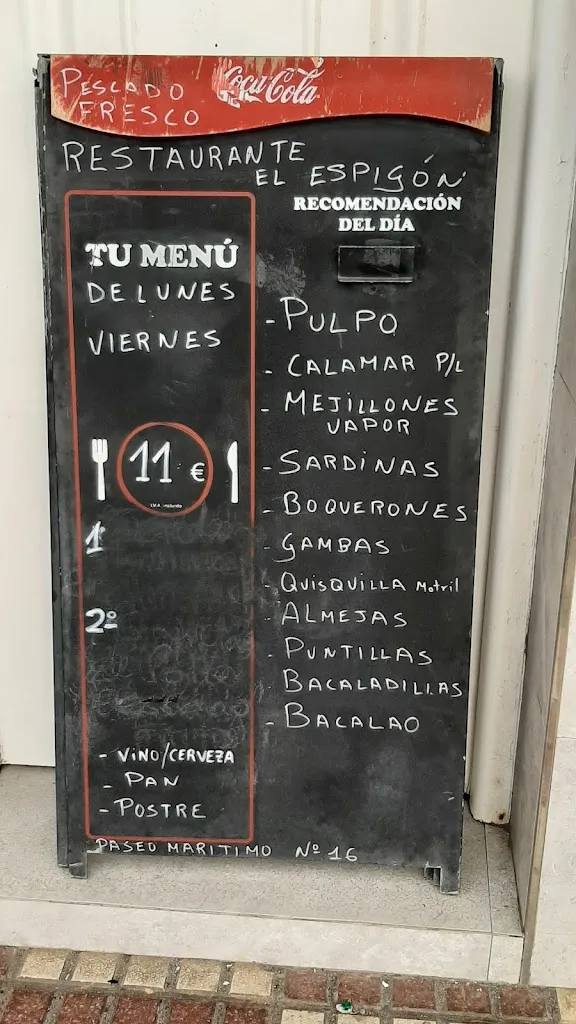 PESCADO
FRESCO
Coca-Cola
RESTAURANTE
EL ESPIGÓN
TU MENÚ
DE LUNES
VIERNES
11 €
I.V.A. incluido
1º
2º
- VINO/CERVEZA
- PAN
- POSTRE
RECOMENDACIÓN
DEL DÍA
- PULPO
- CALAMAR P/L
- MEJILLONES
VAPOR
- SARDINAS
- BOQUERONES
- GAMBAS
- QUISQUILLA Motril
- ALMEJAS
- PUNTILLAS
- BACALADILLAS
- BACALAO
PASEO MARITIMO Nº 16